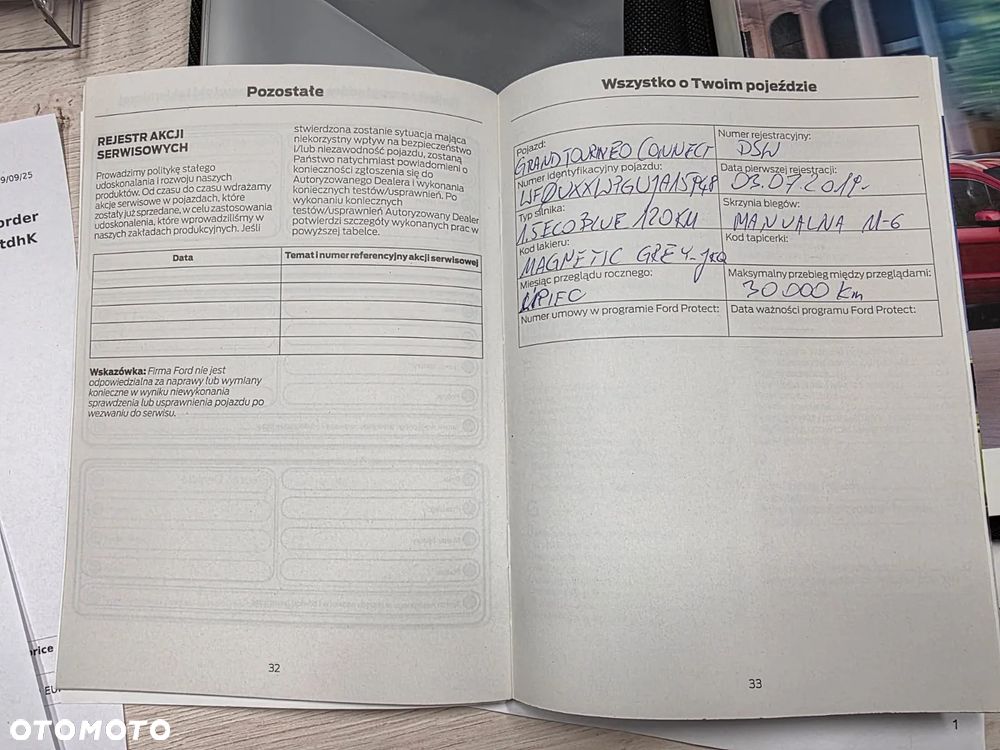 9/09/25
order
tdhK
price
EU
Pozostałe
REJESTR AKCJI
SERWISOWYCH
Prowadzimy politykę stałego
udoskonalania i rozwoju naszych
produktów. Od czasu do czasu wdrażamy
akcje serwisowe w pojazdach, które
zostały już sprzedane, w celu zastosowania
udoskonalenia, które wprowadziliśmy w
naszych zakładach produkcyjnych. Jeśli
stwierdzona zostanie sytuacja mająca
niekorzystny wpływ na bezpieczeństwo
i/lub niezawodność pojazdu, zostaną
Państwo natychmiast powiadomieni o
konieczności zgłoszenia się do
Autoryzowanego Dealera i wykonania
koniecznych testów/usprawnień. Po
wykonaniu koniecznych
testów/usprawnień Autoryzowany Dealer
potwierdzi szczegóły wykonanych prac w
powyższej tabelce.
Data Temat i numer referencyjny akcji serwisowej
Wskazówka: Firma Ford nie jest
odpowiedzialna za naprawy lub wymiany
konieczne w wyniku niewykonania
sprawdzenia lub usprawnienia pojazdu po
wezwaniu do serwisu.
32
Wszystko o Twoim pojeździe
Pojazd:
GRAND TOURNEO CONNECT
Numer rejestracyjny:
DSW
Numer identyfikacyjny pojazdu:
Data pierwszej rejestracji:
03.07.2019.
Typ silnika:
1.5 ECOBLUE 120 KM
Skrzynia biegów:
MANUALNA M-6
Kod lakieru:
MAGNETIC GREY
Kod tapicerki:
Miesiąc przeglądu rocznego:
LIPIEC
Maksymalny przebieg między przeglądami:
30 000 Km
Numer umowy w programie Ford Protect:
Data ważności programu Ford Protect:
33
1
OTOMOTO